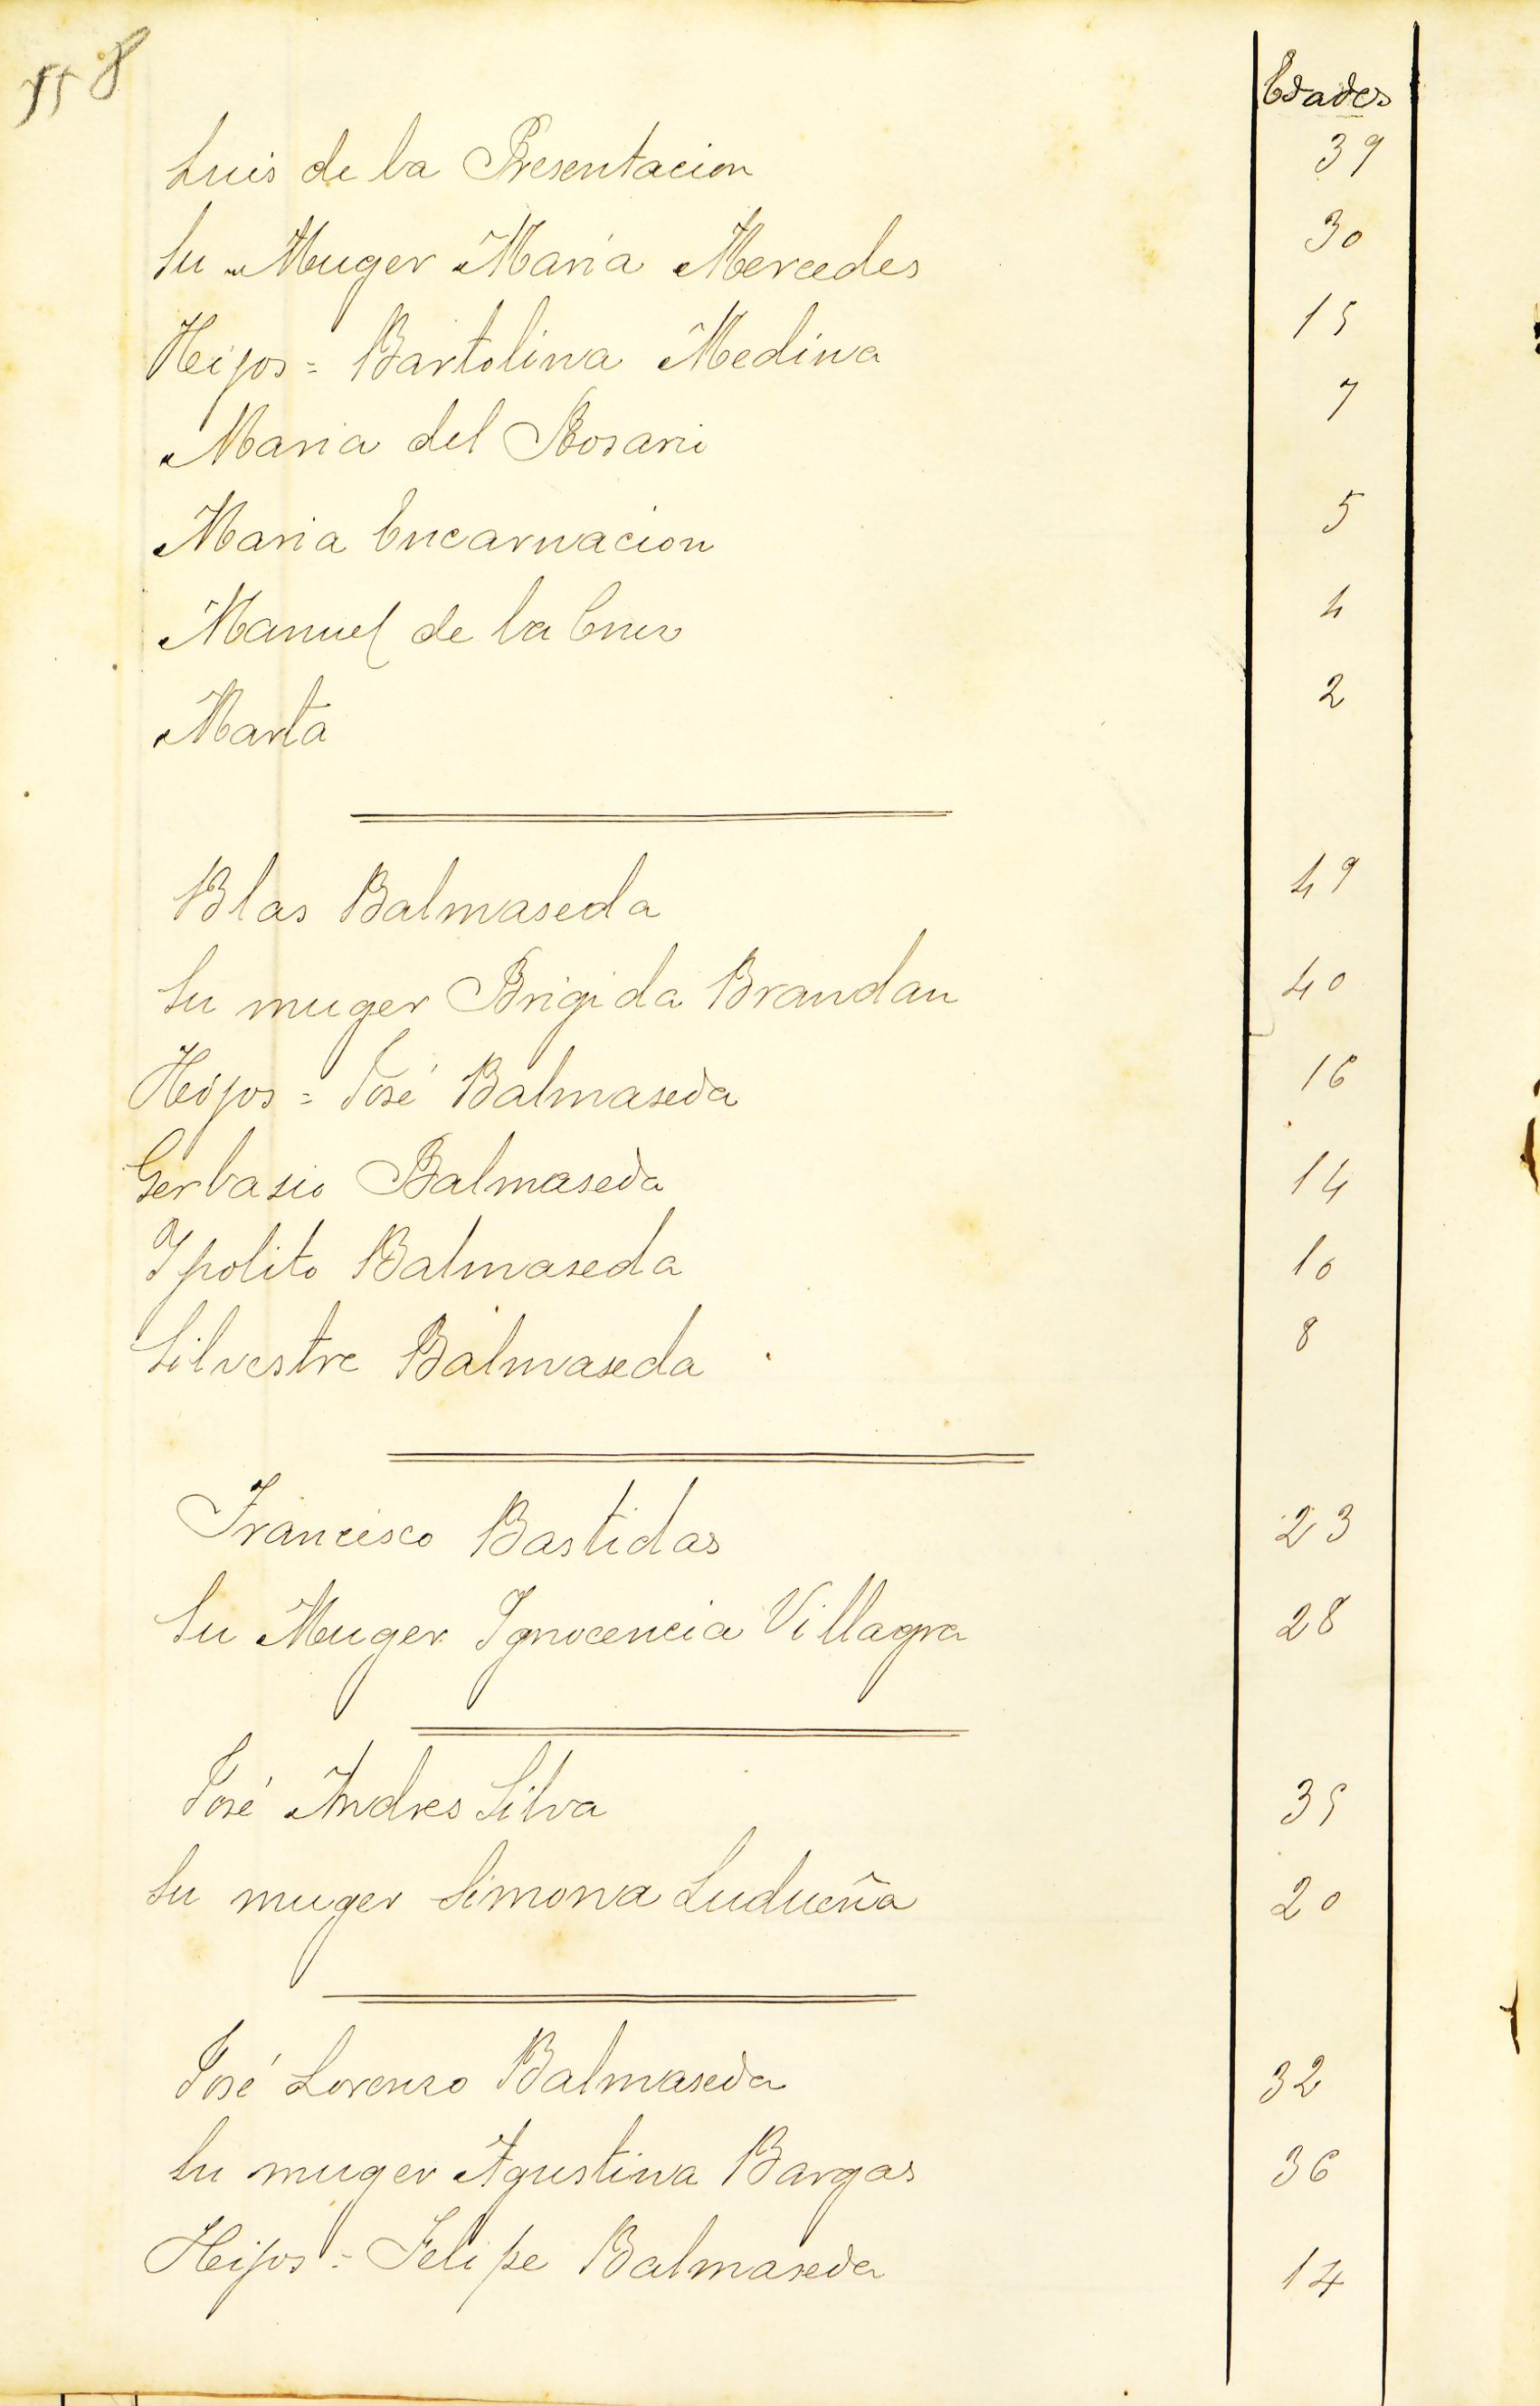 558
Edades
Luis de la Presentacion 39
Su Muger Maria Mercedes 30
Hijos = Bartolina Medina 15
Maria del Rosario 7
Maria Encarnacion 5
Manuel de la Cruz 4
Marta 2
Blas Balmaseda 49
Su muger Brigida Brandan 40
Hijos = José Balmaseda 16
Gerbasio Balmaseda 14
Ypolito Balmaseda 10
Silvestre Balmaseda 8
Francisco Bastidas 23
Su Muger Ygnocencia Villagra 28
José Andres Silva 35
Su muger Simona Ludueña 20
José Lorenzo Balmaseda 32
Su muger Agustina Bargas 36
Hijos = Felipe Balmaseda 14